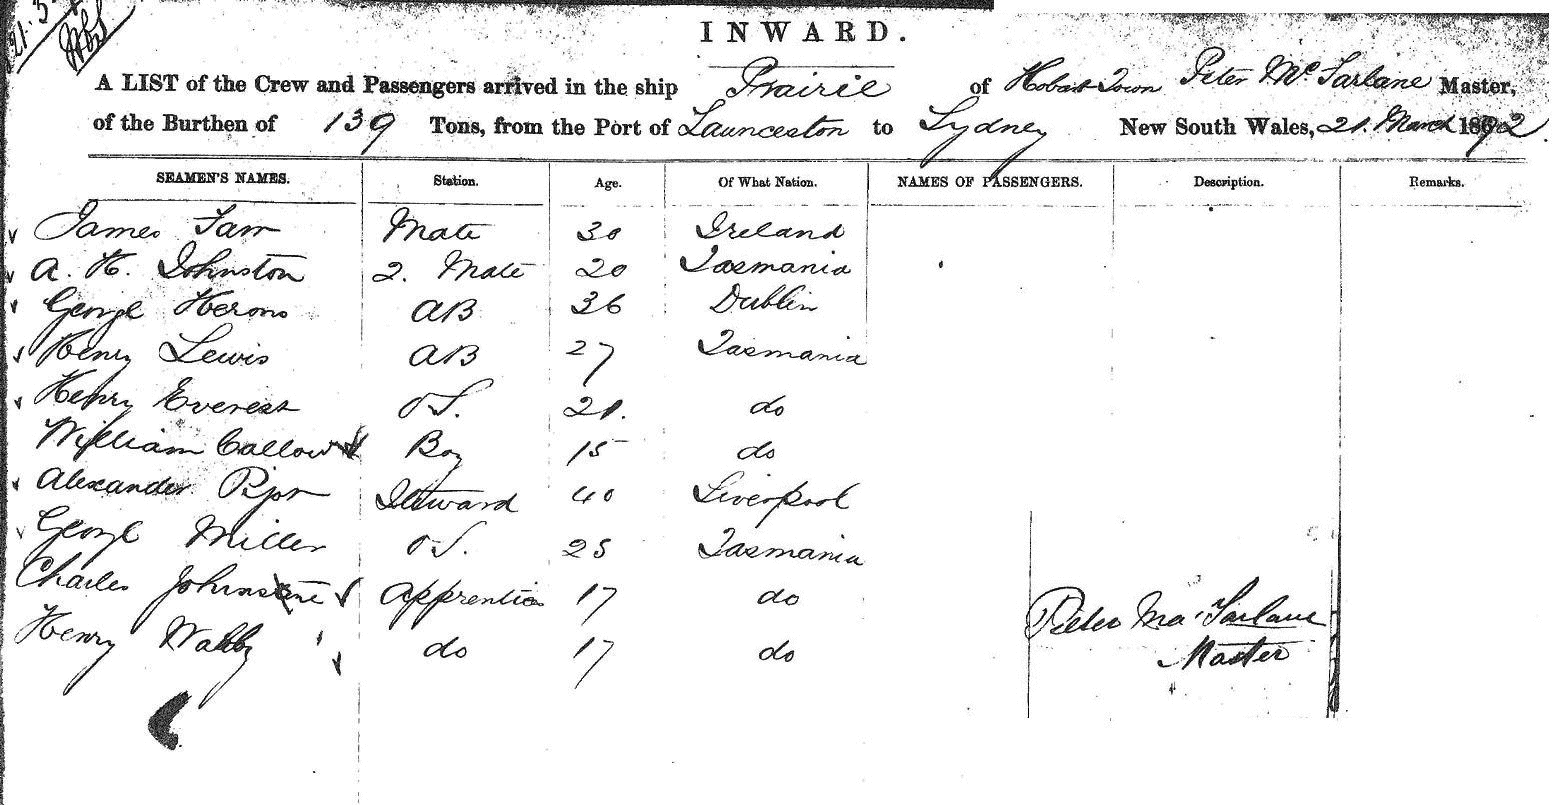 21.3.
INWARD.
A LIST of the Crew and Passengers arrived in the ship Prairie of Hobart Town Peter McFarlane Master,
of the Burthen of 139 Tons, from the Port of Launceston to Sydney New South Wales, 21. March 1872.
SEAMEN'S NAMES. Station. Age. Of What Nation. NAMES OF PASSENGERS. Description. Remarks.
James Mate 30 Ireland
A. H. Johnston 2. Mate 20 Tasmania
George Herons AB 36 Dublin
Henry Lewis AB 27 Tasmania
Henry Everest OS. 21. do
William Callow Boy 15 do
Alexander Steward 40 Liverpool
George Miller OS. 25 Tasmania
Charles Johnstone Apprentice 17 do
Henry do 17 do
Peter McFarlane
Master